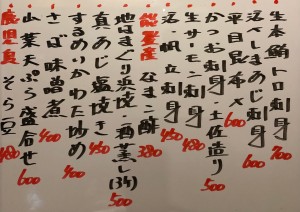 生本鮪トロ刺身 700
活〆しまあじ刺身 600
平目昆布〆 600
かつお刺身・土佐造り 500
生サーモン刺身 450
活・帆立刺身 450
能登産 なまこ酢 380
地はまぐり浜焼・酒蒸し(3ケ) 500
真あじ塩焼き 450
するめいかわた炒め 400
さば味噌煮 400
山菜天ぷら盛合せ 600
鹿児島 そら豆 480